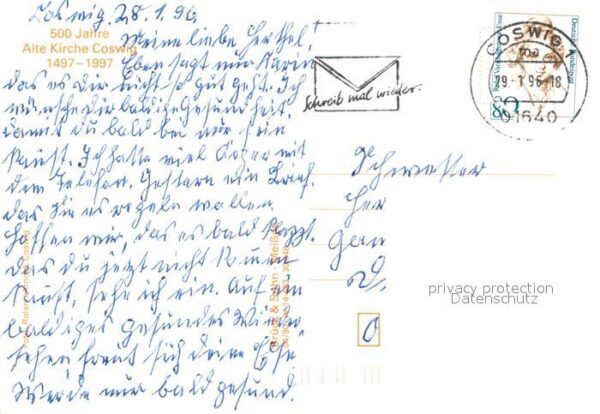 Coswig, 28.1.96
500 Jahre
Alte Kirche Coswig
1497–1997
Meine liebe Herthel!
Eben sagt mir Karin
das es dir nicht so gut geht. Ich
wünsche dir baldige Gesundheit.
damit du bald bei mir sein
kannst. Ich hatte viel Ärger mit
dem Telefon. Gestern ein Brief.
das sie es regeln wollen
hoffen wir, das es bald klappt.
das du jetzt nicht komen
kannst, sehe ich ein. Auf ein
baldiges gesundes Wieder-
sehen freut sich deine Else
Werde nur bald gesund.
Schreib mal wieder.
COSWIG
29.-1.96-18
01640
Deutsche Bundespost
80
Schwester
Her
privacy protection
Datenschutz